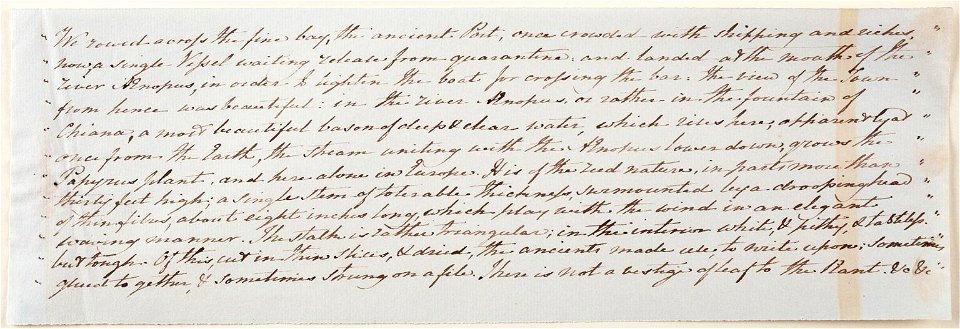 "We rowed across the fine bay, the ancient Port, once crowded with shipping and riches, "
" now, a single Vessel waiting release from quarantine: and landed at the mouth of the "
" river Anopus, in order to lighten the boat for crossing the bar: the view of the town "
" from hence was beautiful: in the river Anopus, or rather in the fountain of "
" Chiana; a most beautiful bason of deep & clear water, which rises here, apparently at "
" once from the Earth, the stream uniting with the Anopus lower down, grows the "
" Papyrus plant, and here alone in Europe. It is of the reed nature, in parts more than "
" thirty feet high; a single stem of tolerable thickness, surmounted by a drooping head "
" of thin filus, about eight inches long, which play with the wind in an elegant "
" waving manner. The stalk is rather triangular; in the interior white, & pithy, & tasteless. "
" but tough. Of this, cut in thin slices, & dried, the ancients made use, to write upon; sometimes "
" glued together, & sometimes strung on a file. There is not a vestige of leaf to the Plant. &c &c "